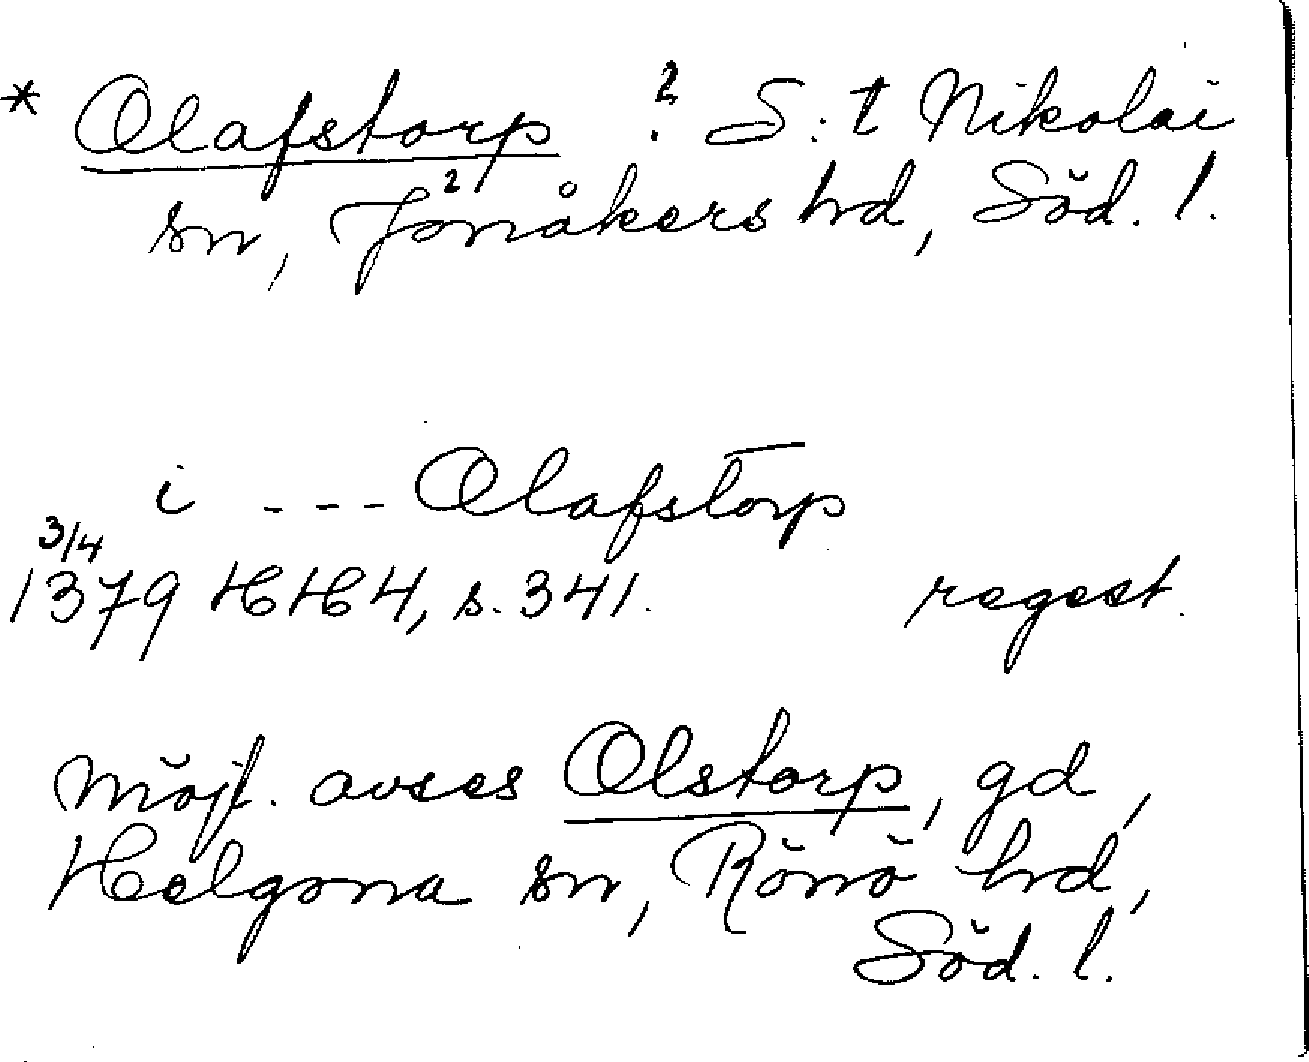 * Olafstorp ? S:t Nikolai
sn, Jönåkers hd, Söd. l.
i --- Olafstorp
3/4
1379 HH 4, s. 341. regest.
Möjl. avses Olstorp, gd,
Helgona sn, Rönö hd,
Söd. l.